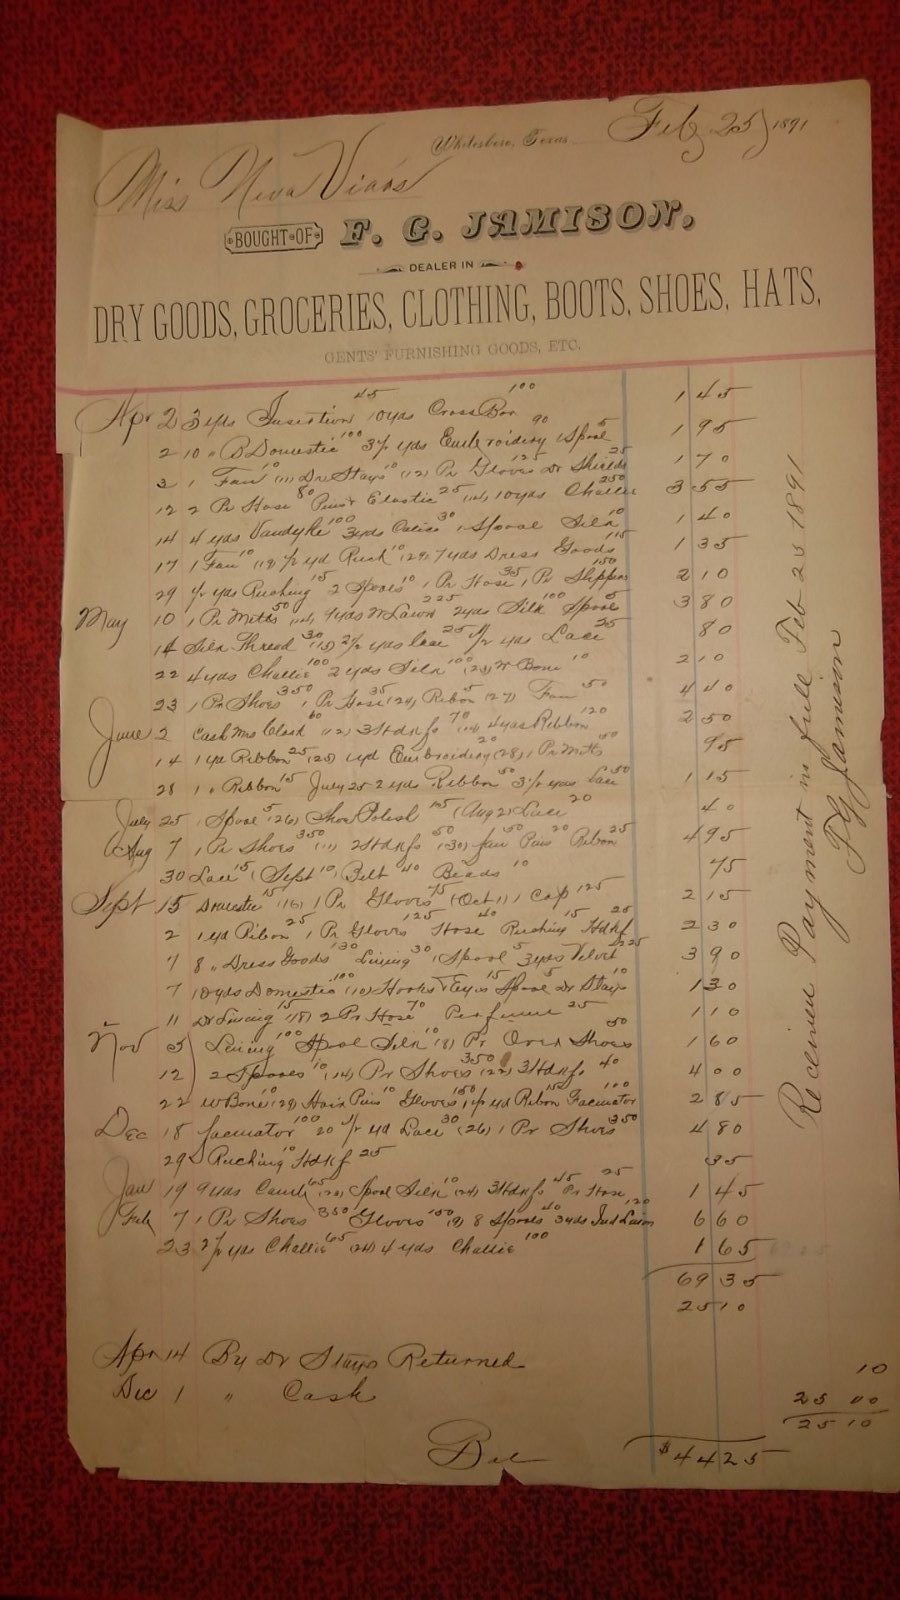 Whitesboro, Texas Feb 25, 1891
Miss Neva
BOUGHT OF F. G. JAMISON,
DEALER IN
DRY GOODS, GROCERIES, CLOTHING, BOOTS, SHOES, HATS,
GENTS' FURNISHING GOODS, ETC.
Apr 2 3 yds Insertion 45 10 yds Cross Bar 100 1 45
2 10 " B Domestic 100 3½ yds Embroidery 90 1 Spool 5 1 95
3 1 Fan 10 (11) Dr Stays 10 (12) Pr Gloves 125 Dr Shields 25 1 70
12 2 Pr Hose 80 Pins & Elastic 25 (14) 10 yds Challie 250 3 55
14 4 yds Vandyke 100 3 yds Calico 30 1 Spool Silk 10 1 40
17 1 Fan 10 (19) ½ yd Ruch 10 (29) 7 yds Dress Goods 115 1 35
29 yds Ruching 15 2 Spools 10 1 Pr Hose 35 1 Pr Slippers 150 2 10
May 10 1 Pr Mitts 50 (14) 9 yds W Lawn 225 2 yds Silk 100 Spool 5 3 80
14 Silk Thread 30 (15) 2½ yds lace 25 yds Lace 25 80
22 4 yds Challie 100 2 yds Silk 100 (23) W Bone 10 2 10
23 1 Pr Shoes 350 1 Pr Hose 35 (24) Ribon 5 (27) Fan 50 4 40
June 2 Cash Mrs Clark 60 (12) 3 Hdkfs 70 (14) 4 yds Ribbon 120 2 50
14 1 yd Ribbon 25 (25) 1 yd Embroidery 20 (28) 1 Pr Mitts 50 95
28 1 " Ribbon 15 July 25 2 yds Ribbon 50 3½ yds Lace 50 1 15
July 25 1 Spool 5 (26) Shoe Polish 15 (Aug 2) Lace 20 40
Aug 7 1 Pr Shoes 350 (11) 2 Hdkfs 50 (30) fan 50 Pins 20 Ribon 25 4 95
30 Lace 15 (Sept 10) Belt 40 Beads 10 75
Sept 15 Domestic 15 (16) 1 Pr Gloves 75 (Oct 1) 1 Cap 125 2 15
2 1 yd Ribon 25 1 Pr Gloves 125 Hose 40 Ruching 15 Hdkf 25 2 30
7 8 " Dress Goods 130 Lining 30 1 Spool 5 3 yds Velvet 225 3 90
7 10 yds Domestic 100 (10) Hooks & Eyes 15 Spool 5 Dr Stays 10 1 30
11 Dr Lining 15 (18) 2 Pr Hose 70 Perfume 25 1 10
Nov 5 Lining 100 Spool Silk 10 (8) Pr Over Shoes 50 1 60
12 2 Spools 10 (14) Pr Shoes 350 (22) 3 Hdkfs 40 4 00
22 W Bone (29) Hair Pins 10 Gloves 150 yd Ribon 15 Facinator 100 2 85
Dec 18 facinator 100 20 ½ yd Lace 30 (26) 1 Pr Shoes 350 4 80
29 Ruching 10 Hdkf 25 35
Jan 19 9 yds 65 (22) Spool Silk 10 (24) 3 Hdkfs 45 Pr Hose 25 1 45
Feb 7 1 Pr Shoes 350 Gloves 150 (9) 8 Spools 40 3 yds Ind Linen 120 6 60
23 2½ yds Challie 65 (24) 4 yds Challie 100 1 65
69 35
25 10
Apr 14 By Dr Stays Returned 10
Dec 1 " Cash 25 00
25 10
Bal $44 25
Received Payment in full Feb 25 1891
F G Jamison